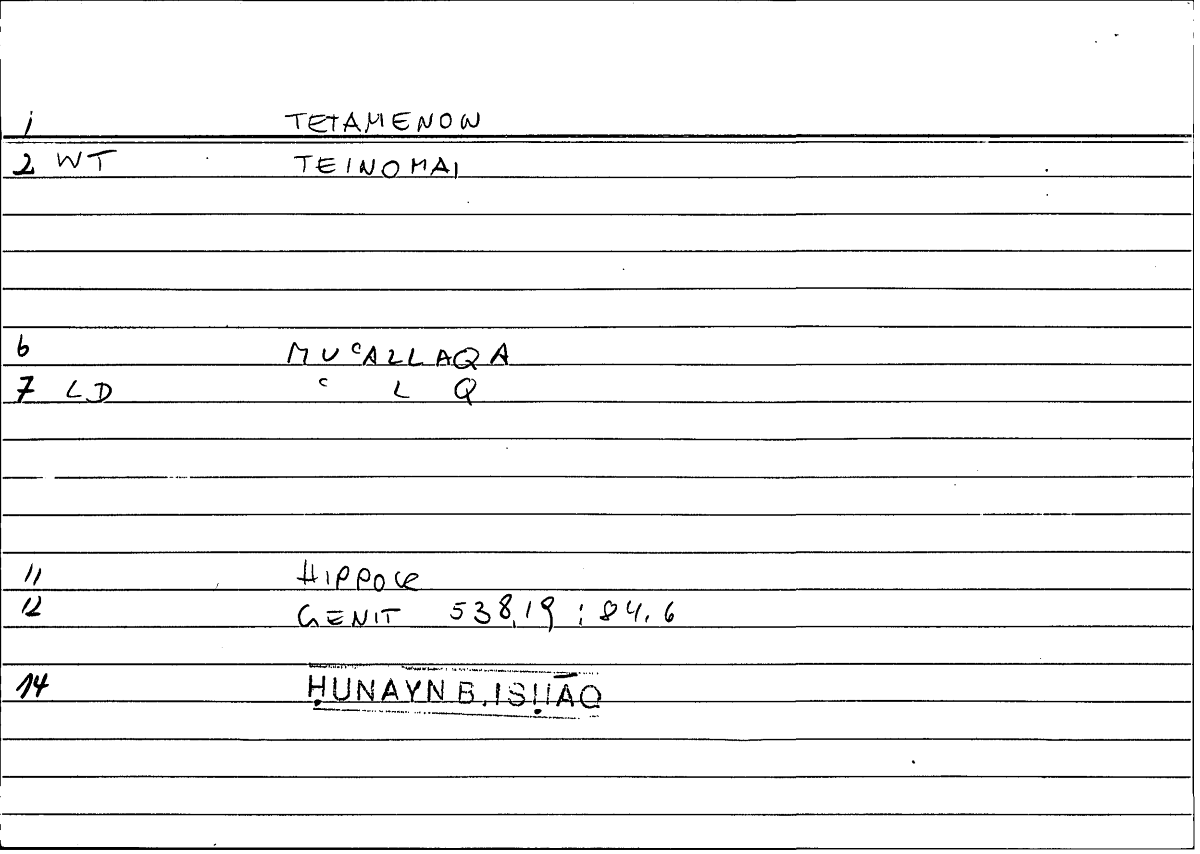 1 TETAMENON
2 WT TEINOMAI
6 MUʿALLAQA
7 LD ʿ L Q
11 HIPPOCR
12 GENIT 538,19 ; 84.6
14 ḤUNAYN B. ISḤĀQ